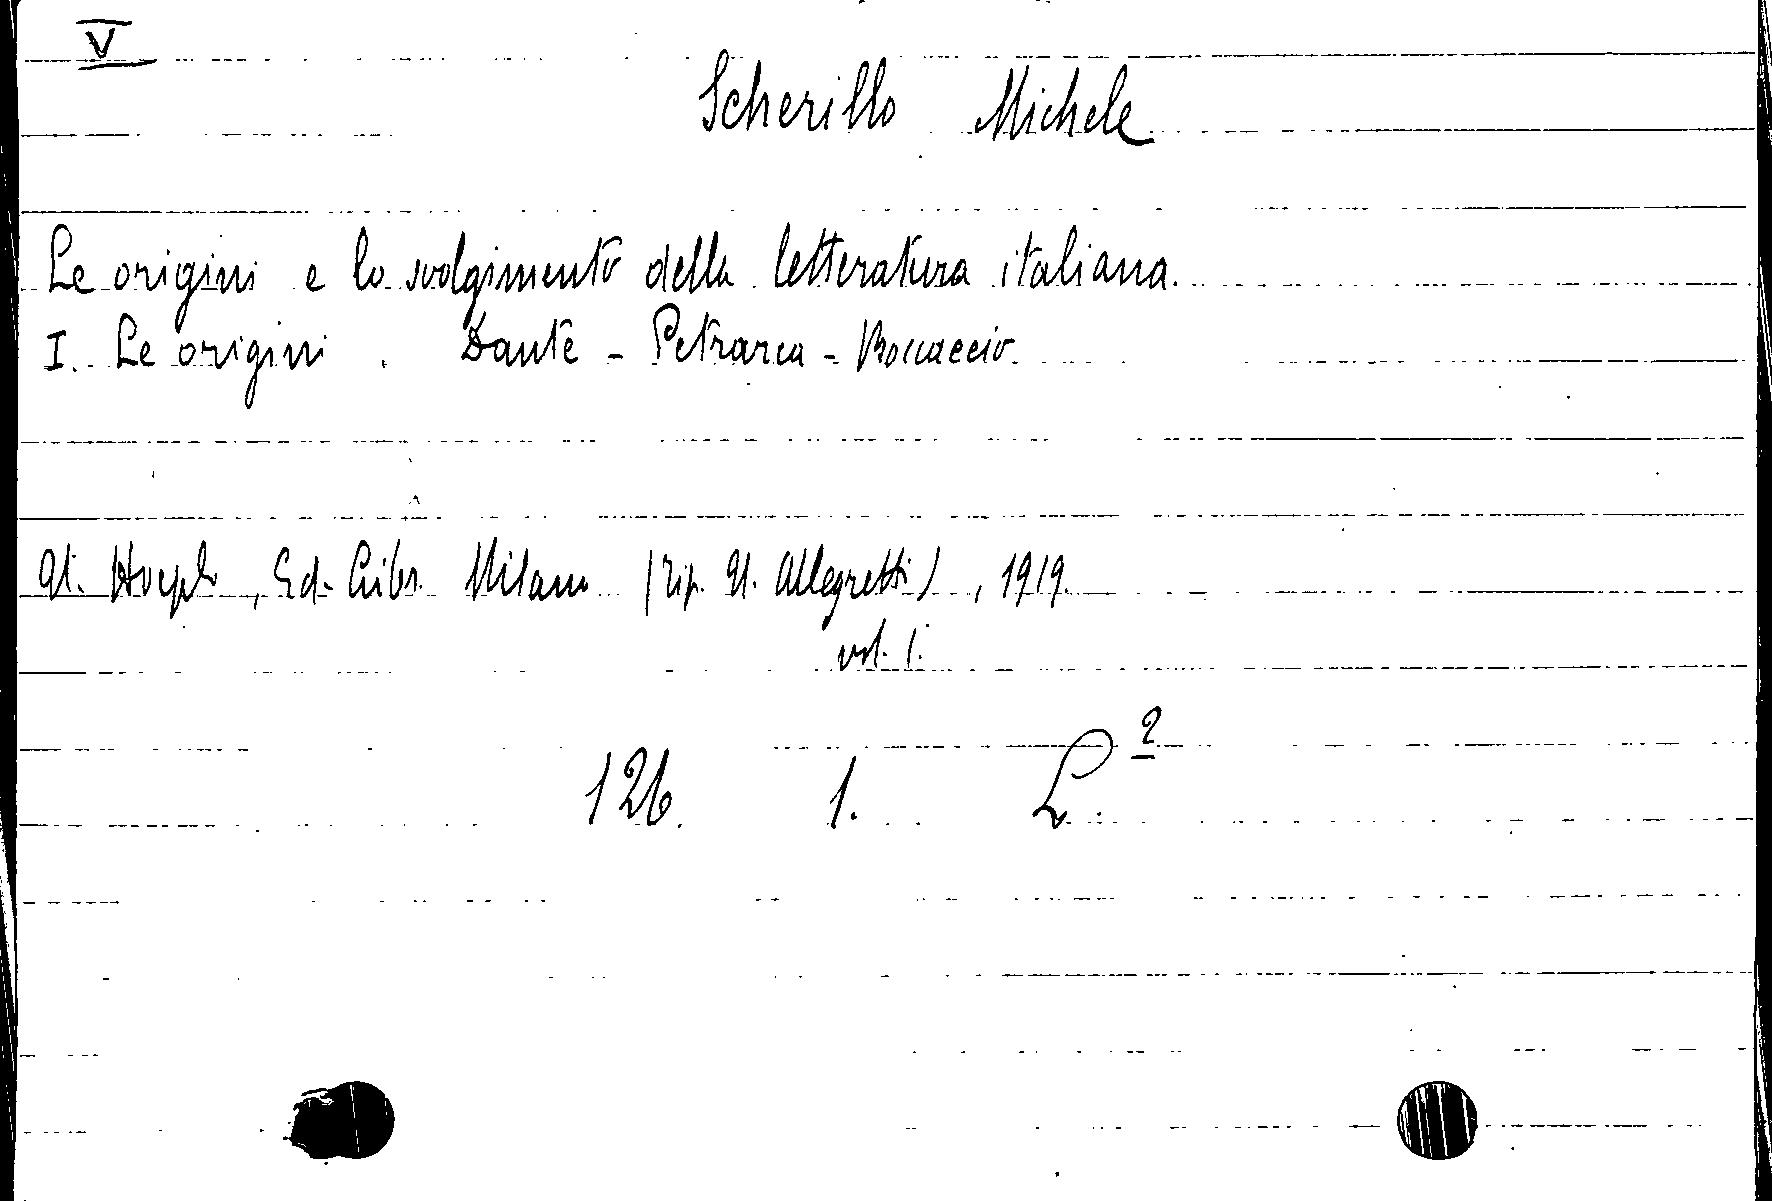 V
Scherillo Michele
Le origini e lo svolgimento della letteratura italiana.
I. Le origini. Dante - Petrarca - Boccaccio.
U. Hoepli, Ed. Libr. Milano (Tip. U. Allegretti), 1919.
vol. 1.
126. 1. L.2